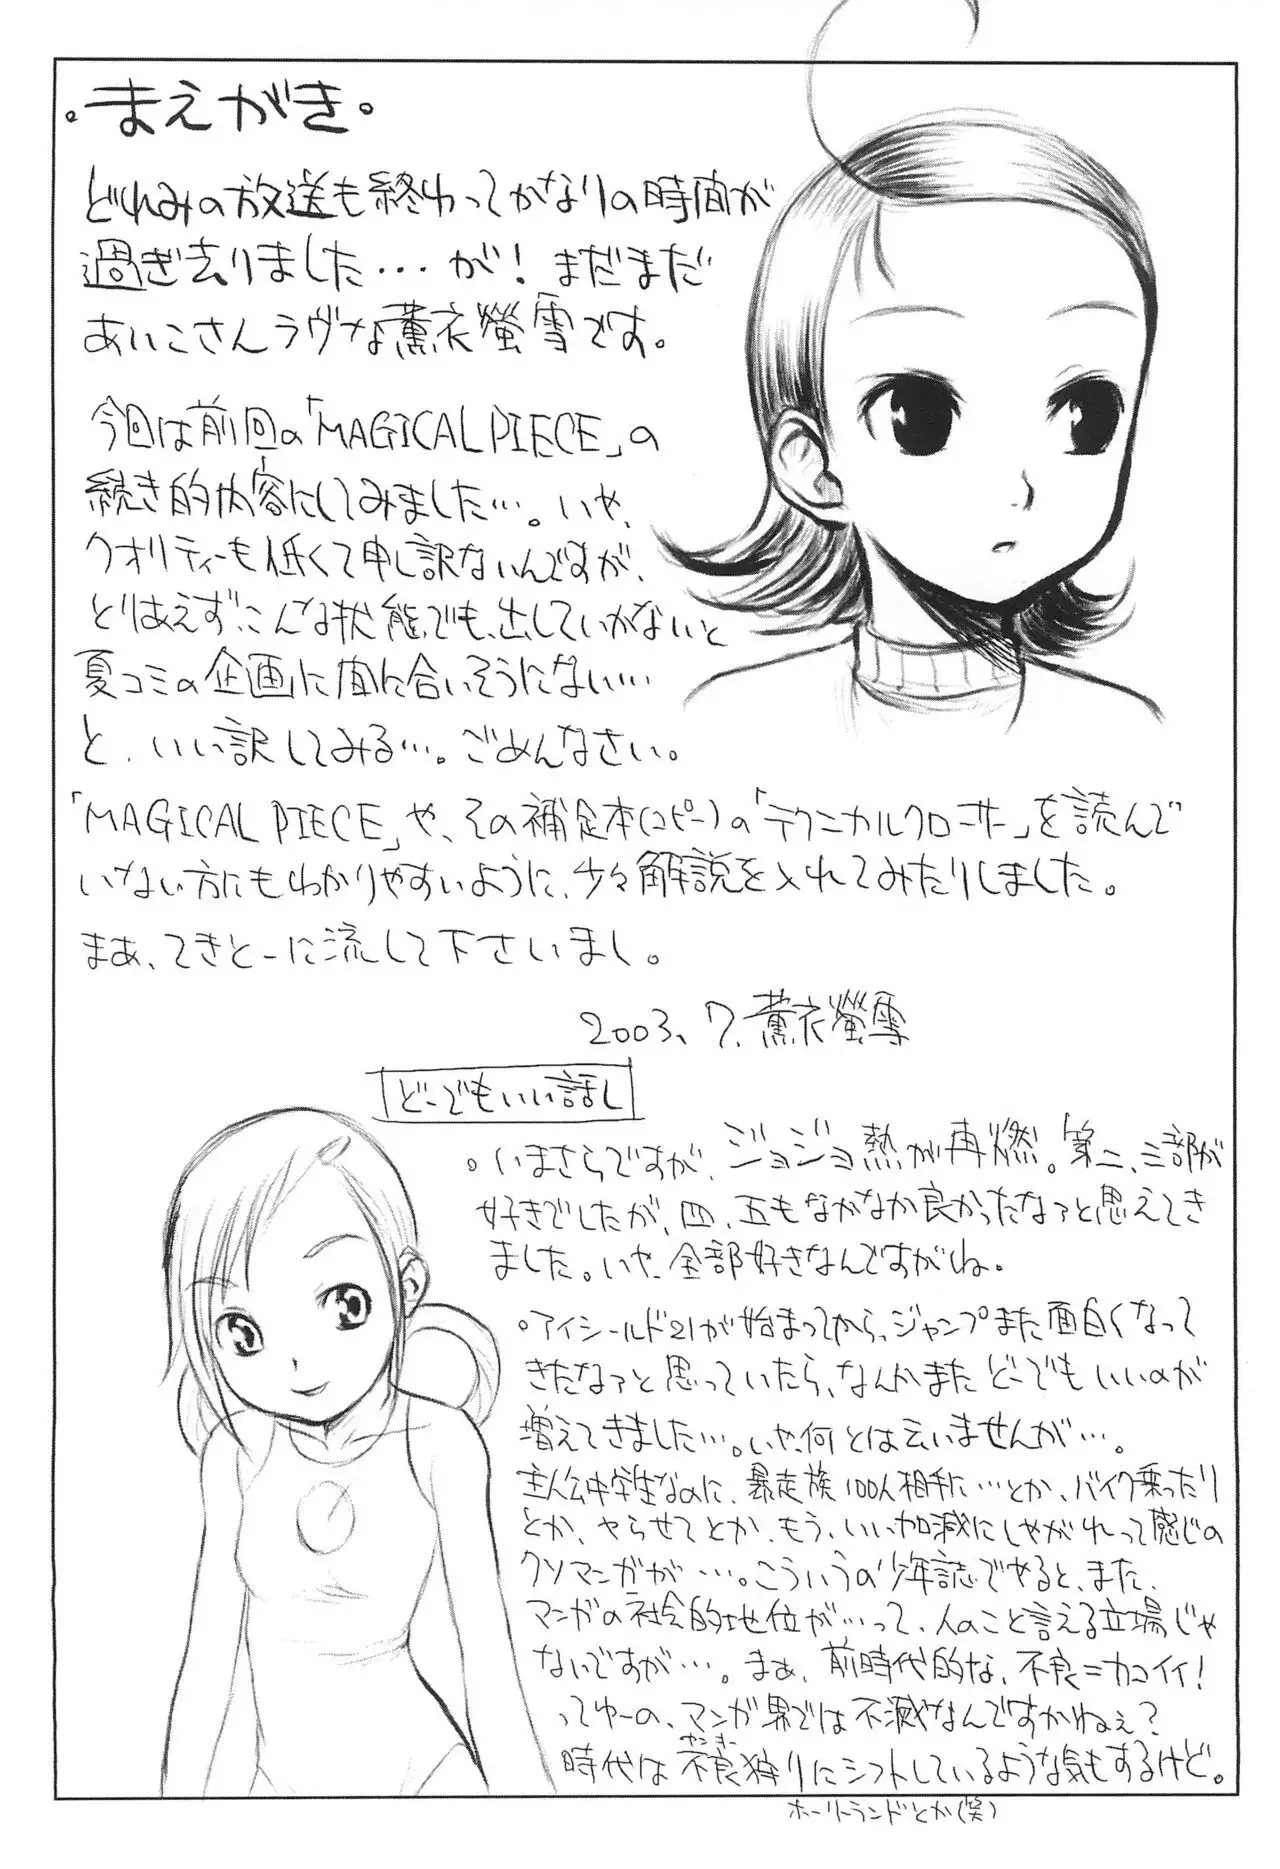 。まえがき。
どれみの放送も終わってかなりの時間が
過ぎ去りました…が！まだまだ
あいこさんラヴな薫衣螢雪です。
今回は前回の「MAGICAL PIECE」の
続き的内容にしてみました…。いや、
クオリティーも低くて申し訳ないんですが、
とりあえず、こんな状態でも、出していかないと
夏コミの企画に間に合いそうにない…
と、いい訳してみる…。ごめんなさい。
「MAGICAL PIECE」や、その補足本(コピー)の「テクニカルクローサー」を読んで
いない方にもわかりやすいように、少々解説を入れてみたりしました。
まぁ、てきとーに流して下さいまし。
2003、7、薫衣螢雪
どーでもいい話し
。いまさらですが、ジョジョ熱が再燃。第二、三部が
好きでしたが、四、五もなかなか良かったなァと思えてき
ました。いや、全部好きなんですがね。
。アイシールド21が始まってから、ジャンプまた面白くなって
きたなァと思っていたら、なんかまたどーでもいいのが
増えてきました…。いや、何とは云いませんが…。
主人公中学生なのに、暴走族100人相手に…とか、バイク乗ったり
とか、やらせてとか、もう、いい加減にしやがれって感じの
クソマンガが…。こういうの少年誌でやると、また、
マンガの社会的地位が…って、人のこと言える立場じゃ
ないですが…。まぁ、前時代的な、不良＝カコイイ！
ってゆーの、マンガ界では不滅なんですかねぇ？
ヤンキー
時代は不良狩りにシフトしているような気もするけど。
ホーリーランドとか(笑)